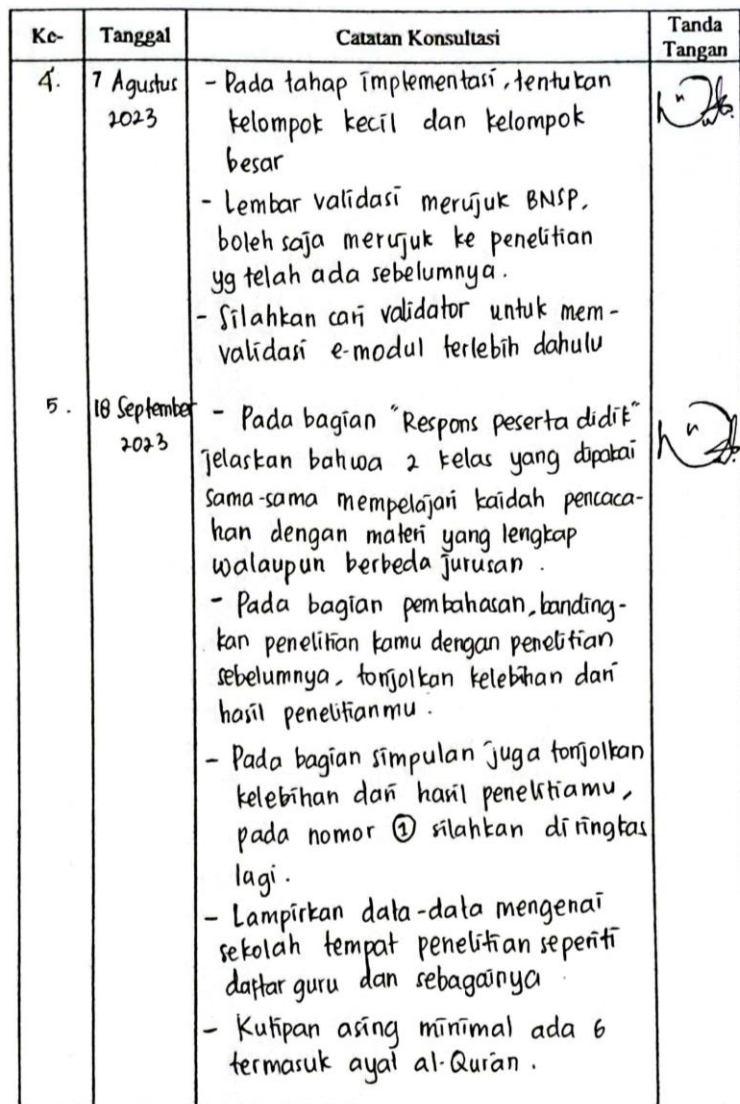 Ke- Tanggal Catatan Konsultasi Tanda Tangan
4. 7 Agustus 2023
- Pada tahap implementasi, tentukan
kelompok kecil dan kelompok
besar
- Lembar validasi merujuk BNSP,
boleh saja merujuk ke penelitian
yg telah ada sebelumnya.
- Silahkan cari validator untuk mem-
validasi e-modul terlebih dahulu
5. 18 September 2023
- Pada bagian "Respons peserta didik"
jelaskan bahwa 2 kelas yang dipakai
sama-sama mempelajari kaidah pencaca-
han dengan materi yang lengkap
walaupun berbeda jurusan.
- Pada bagian pembahasan, banding-
kan penelitian kamu dengan penelitian
sebelumnya, tonjolkan kelebihan dari
hasil penelitianmu.
- Pada bagian simpulan juga tonjolkan
kelebihan dari hasil penelitiamu,
pada nomor ① silahkan diringkas
lagi.
- Lampirkan data-data mengenai
sekolah tempat penelitian seperiti
daftar guru dan sebagainya
- Kutipan asing minimal ada 6
termasuk ayat al-Qur'an.